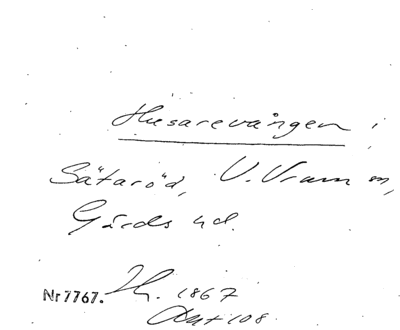 Husarevången i
Sätaröd, V. Vram sn,
Gärds hd.
Nr 7767. H. 1867
Akt 108